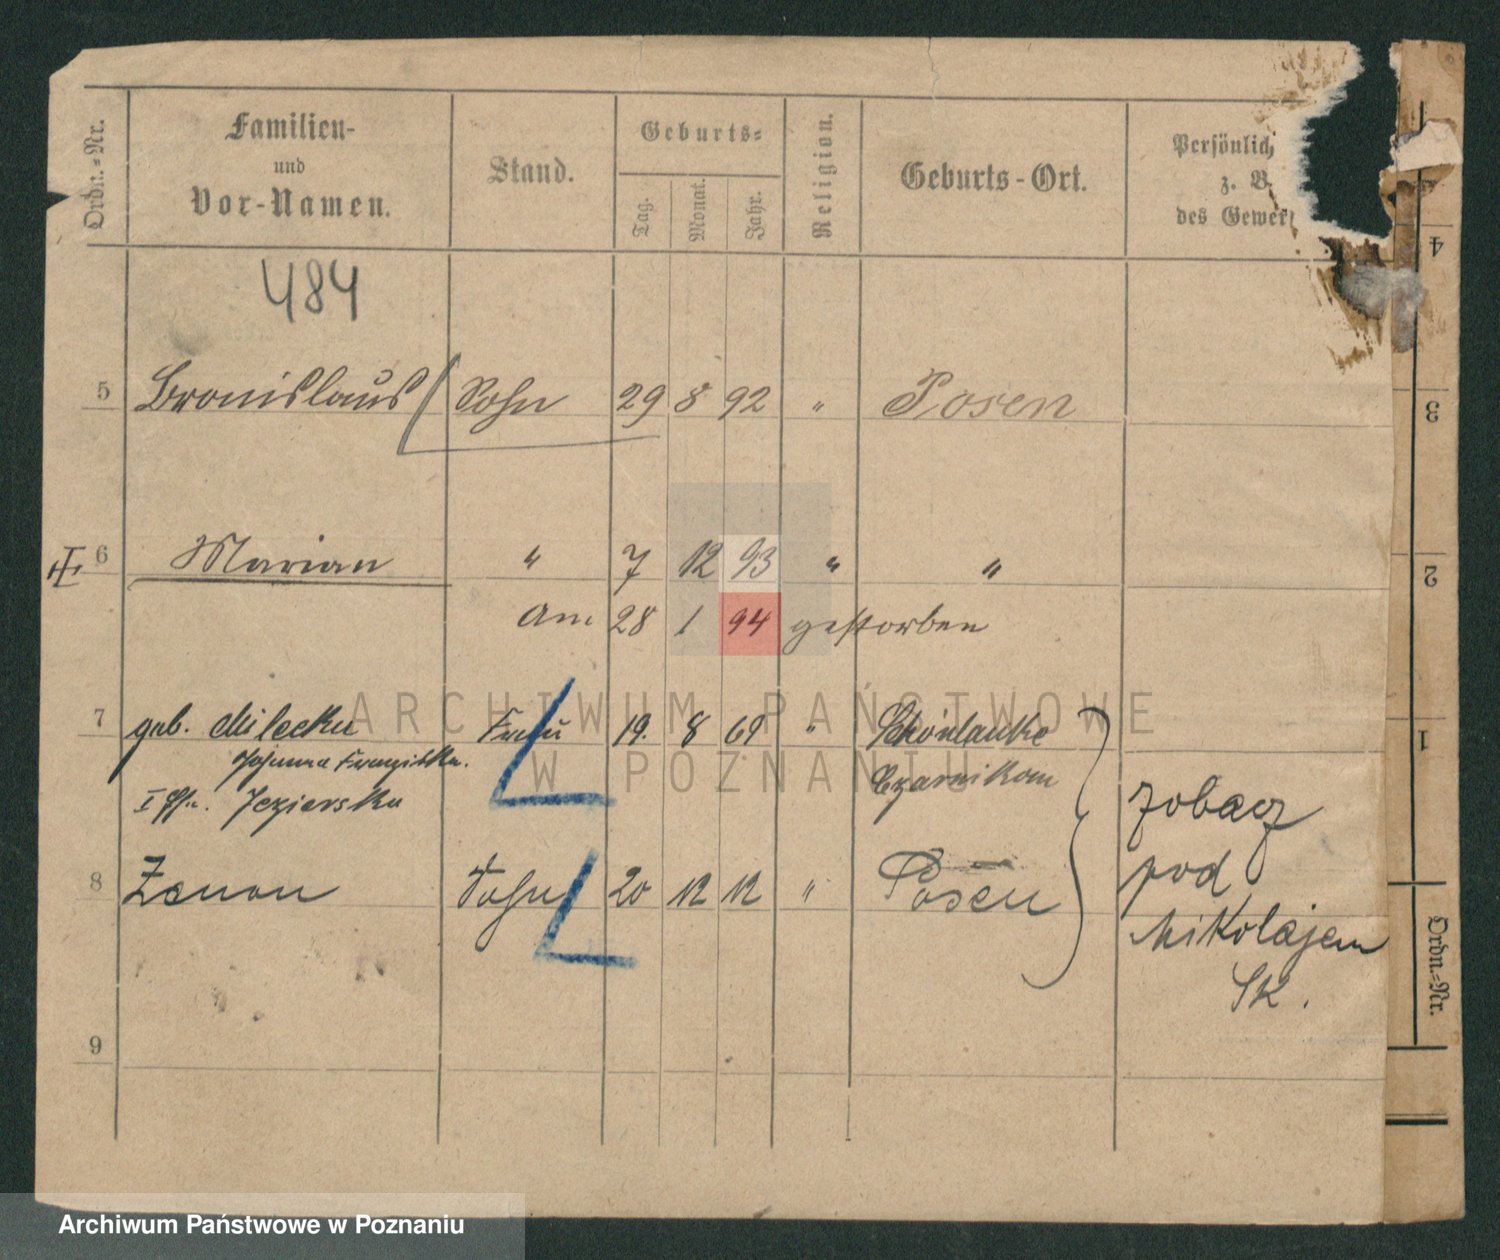 Ordn.-Nr.
Familien-
und
Vor-Namen.
Stand.
Geburts-
Tag.
Monat.
Jahr.
Religion.
Geburts-Ort.
Persönlich
z. B.
des Gewer
484
5 Bronislaus Sohn 29 8 92 " Posen
6 Marian " 7 12 93 " "
am 28 1 94 gestorben
7 geb. Milecka Frau 19. 8 69 " Schönlanke
Johanna Franziska. Czarnikau
I Eh. Jezierska
zobacz
8 Zenon Sohn 20 12 12 " Posen
pod
Mikolajem
Sk.
9
4
3
2
1
Ordn.-Nr.
ARCHIWUM PAŃSTWOWE
W POZNANIU
Archiwum Państwowe w Poznaniu